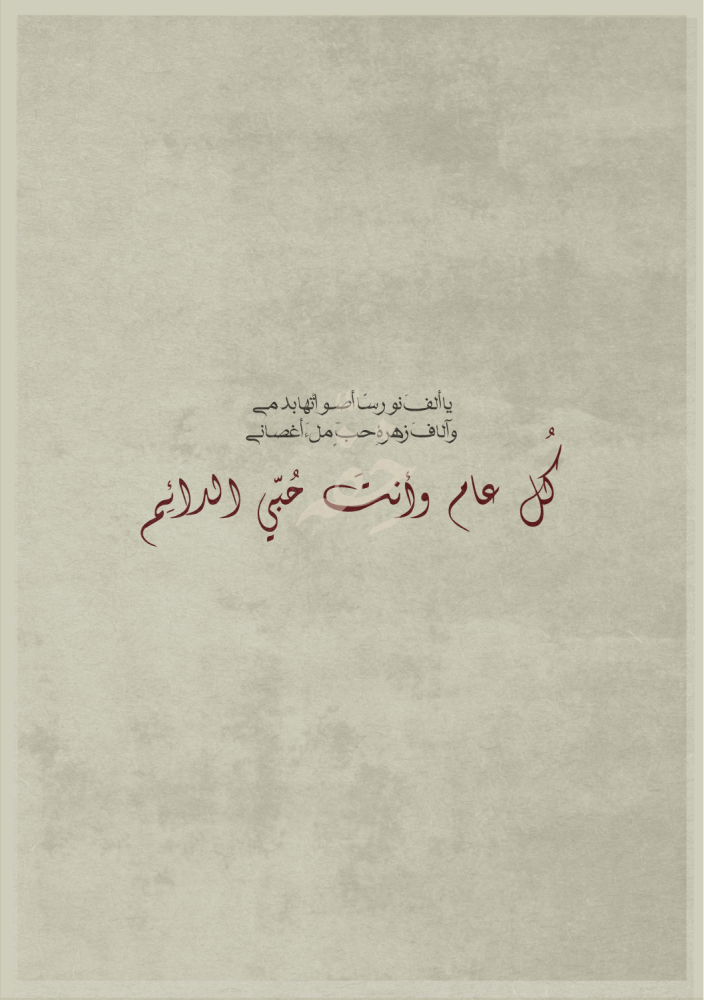 يا ألفَ نورسَا أصواتُها بدمي
وآلافَ زهرةِ حبٍّ ملءَ أغصاني
كُل عام وأنتَ حُبّي الدائِم